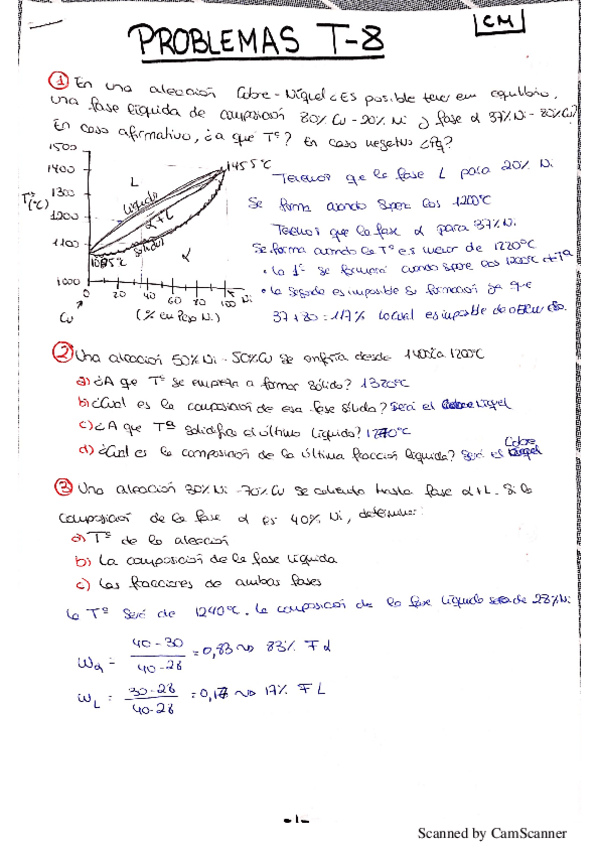 CM
PROBLEMAS T-8
① En una aleación Cobre-Níquel ¿Es posible tener en equilibrio,
una fase líquida de composición 80% Cu - 20% Ni y fase α 37% Ni - 80% Cu?
En caso afirmativo, ¿a que Tº? En caso negativo ¿Pq?
1500
1400
1300
1200
1100
1000
Tº
(ºC)
L
líquido
α+L
solid
α
1455ºC
1085ºC
0 20 40 60 80 100 Ni
Cu
(% en Peso Ni)
Tenemos que la fase L para 20% Ni
Se forma cuando supera los 1200ºC
Tenemos que la fase α para 37% Ni
Se forma cuando la Tº es menor de 1220ºC
• la 1ª se formará cuando supere los 1200ºC de Tª
• la segunda es imposible su formación ya que
37 + 80 = 117% lo cual es imposible de
② Una aleación 50% Ni - 50% Cu se enfría desde 1400 a 1200ºC
a) ¿A que Tº se empieza a formar sólido? 1320ºC
b) ¿Cual es la composición de esa fase sólida? Será el Níquel
c) ¿A que Tª solidifica el último líquido? 1270ºC
d) ¿Cual es la composición de la última fracción líquida? Será el Cobre
③ Una aleación 30% Ni - 70% Cu se calienta hasta fase α+L. Si la
composición de la fase α es 40% Ni, determinar:
a) Tº de la aleación
b) La composición de la fase líquida
c) Las fracciones de ambas fases
la Tº será de 1240ºC. la composición de la fase líquida será de 28% Ni
Wα = (40-30)/(40-28) = 0,83 ⇝ 83% F α
WL = (30-28)/(40-28) = 0,17 ⇝ 17% F L
-1-
Scanned by CamScanner